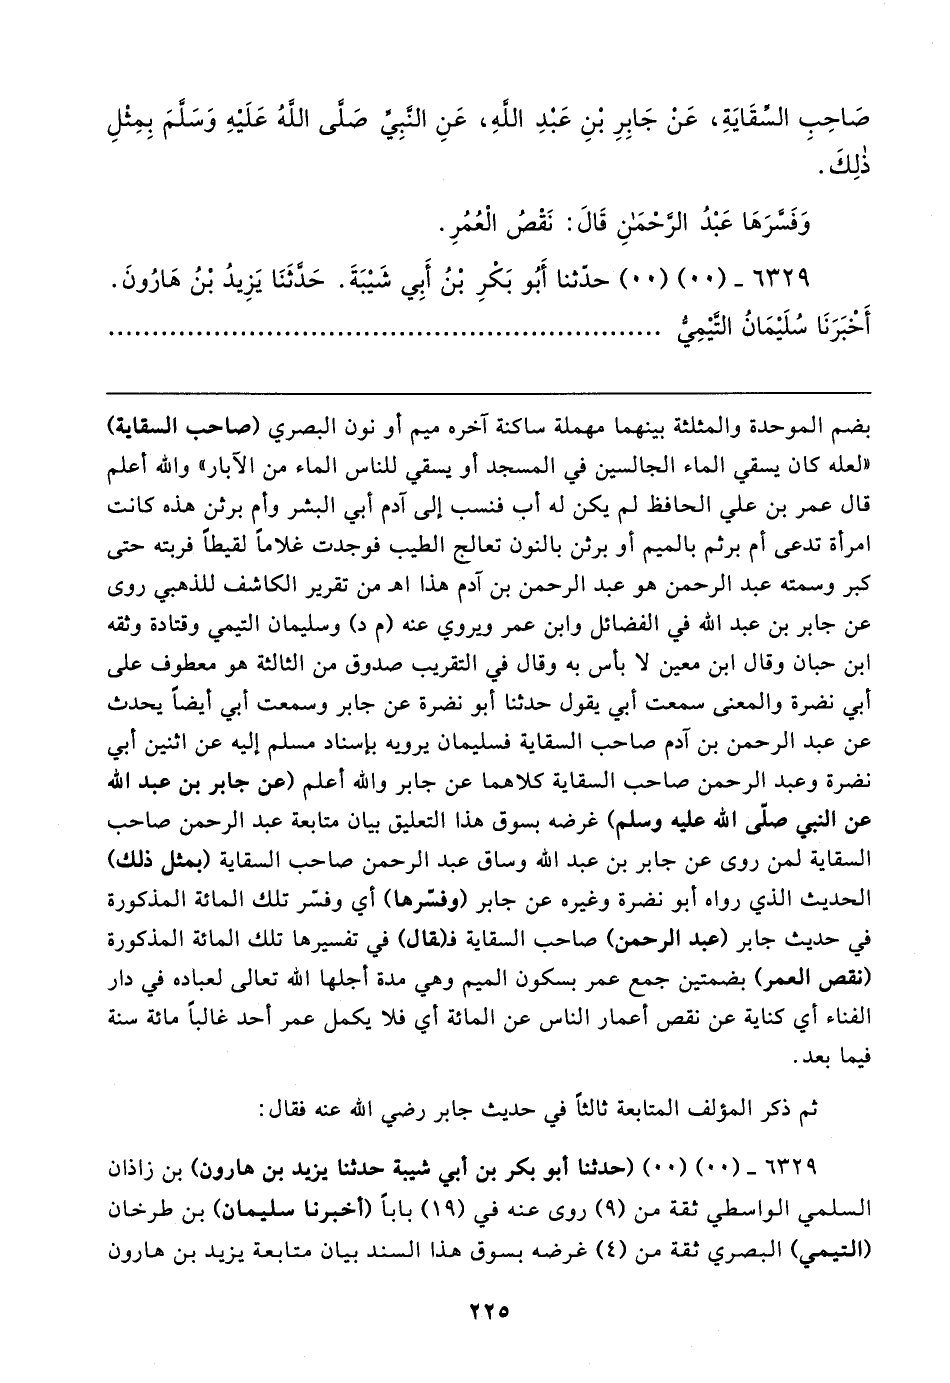 صَاحِبِ السِّقَايَةِ، عَنْ جَابِرِ بْنِ عَبْدِ اللَّهِ، عَنِ النَّبِيِّ صَلَّى اللَّهُ عَلَيْهِ وَسَلَّمَ بِمِثْلِ
ذٰلِكَ.
وَفَسَّرَهَا عَبْدُ الرَّحْمٰنِ قَالَ: نَقْصُ الْعُمُرِ.
٦٣٢٩ ـ (٠٠) (٠٠) حدّثنا أَبُو بَكْرِ بْنُ أَبِي شَيْبَةَ. حَدَّثَنَا يَزِيدُ بْنُ هَارُونَ.
أَخْبَرَنَا سُلَيْمَانُ التَّيْمِيُّ ..............................................................
بضم الموحدة والمثلثة بينهما مهملة ساكنة آخره ميم أو نون البصري (صاحب السقاية)
«لعله كان يسقي الماء الجالسين في المسجد أو يسقي للناس الماء من الآبار» والله أعلم
قال عمر بن علي الحافظ لم يكن له أب فنسب إلى آدم أبي البشر وأم برثن هذه كانت
امرأة تدعى أم برثم بالميم أو برثن بالنون تعالج الطيب فوجدت غلاماً لقيطاً فربته حتى
كبر وسمته عبد الرحمن هو عبد الرحمن بن آدم هذا اهـ من تقرير الكاشف للذهبي روى
عن جابر بن عبد الله في الفضائل وابن عمر ويروي عنه (م د) وسليمان التيمي وقتادة وثقه
ابن حبان وقال ابن معين لا بأس به وقال في التقريب صدوق من الثالثة هو معطوف على
أبي نضرة والمعنى سمعت أبي يقول حدثنا أبو نضرة عن جابر وسمعت أبي أيضاً يحدث
عن عبد الرحمن بن آدم صاحب السقاية فسليمان يرويه بإسناد مسلم إليه عن اثنين أبي
نضرة وعبد الرحمن صاحب السقاية كلاهما عن جابر والله أعلم (عن جابر بن عبد الله
عن النبي صلّى الله عليه وسلم) غرضه بسوق هذا التعليق بيان متابعة عبد الرحمن صاحب
السقاية لمن روى عن جابر بن عبد الله وساق عبد الرحمن صاحب السقاية (بمثل ذلك)
الحديث الذي رواه أبو نضرة وغيره عن جابر (وفسّرها) أي وفسّر تلك المائة المذكورة
في حديث جابر (عبد الرحمن) صاحب السقاية فـ(قال) في تفسيرها تلك المائة المذكورة
(نقص العمر) بضمتين جمع عمر بسكون الميم وهي مدة أجلها الله تعالى لعباده في دار
الفناء أي كناية عن نقص أعمار الناس عن المائة أي فلا يكمل عمر أحد غالباً مائة سنة
فيما بعد.
ثم ذكر المؤلف المتابعة ثالثاً في حديث جابر رضي الله عنه فقال:
٦٣٢٩ ـ (٠٠) (٠٠) (حدثنا أبو بكر بن أبي شيبة حدثنا يزيد بن هارون) بن زاذان
السلمي الواسطي ثقة من (٩) روى عنه في (١٩) باباً (أخبرنا سليمان) بن طرخان
(التيمي) البصري ثقة من (٤) غرضه بسوق هذا السند بيان متابعة يزيد بن هارون
٢٢٥